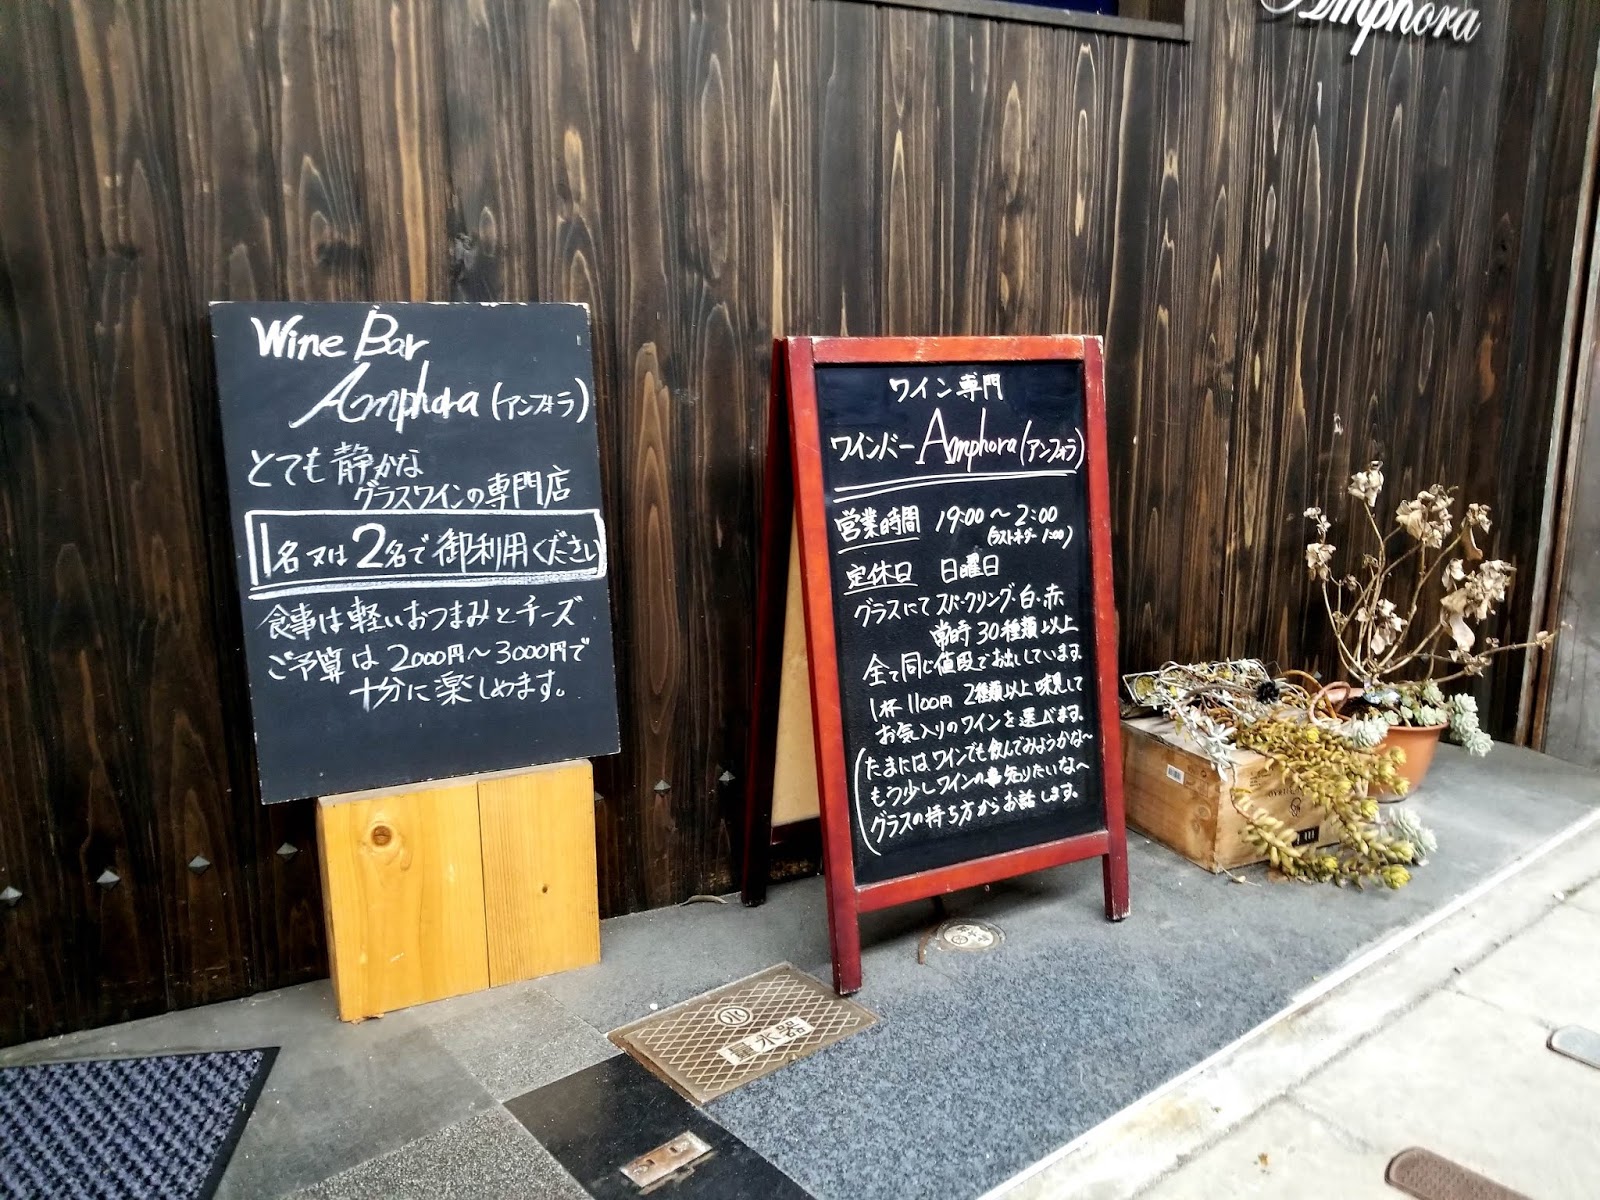 Amphora
Wine Bar
Amphora (アンフォラ)
とても静かな
グラスワインの専門店
1名又は2名で御利用ください
食事は軽いおつまみとチーズ
ご予算は2000円〜3000円で
十分に楽しめます。
ワイン専門
ワインバー Amphora (アンフォラ)
営業時間 19:00〜2:00
(ラストオーダー 1:00)
定休日 日曜日
グラスにて スパークリング・白・赤
常時30種類以上
全て同じ値段でお出ししています。
1杯1100円 2種類以上味見して
お気入りのワインを選べます。
(たまにはワインでも飲んでみようかな〜
もう少しワインの事知りたいな〜
グラスの持ち方からお話します。
水
量水器